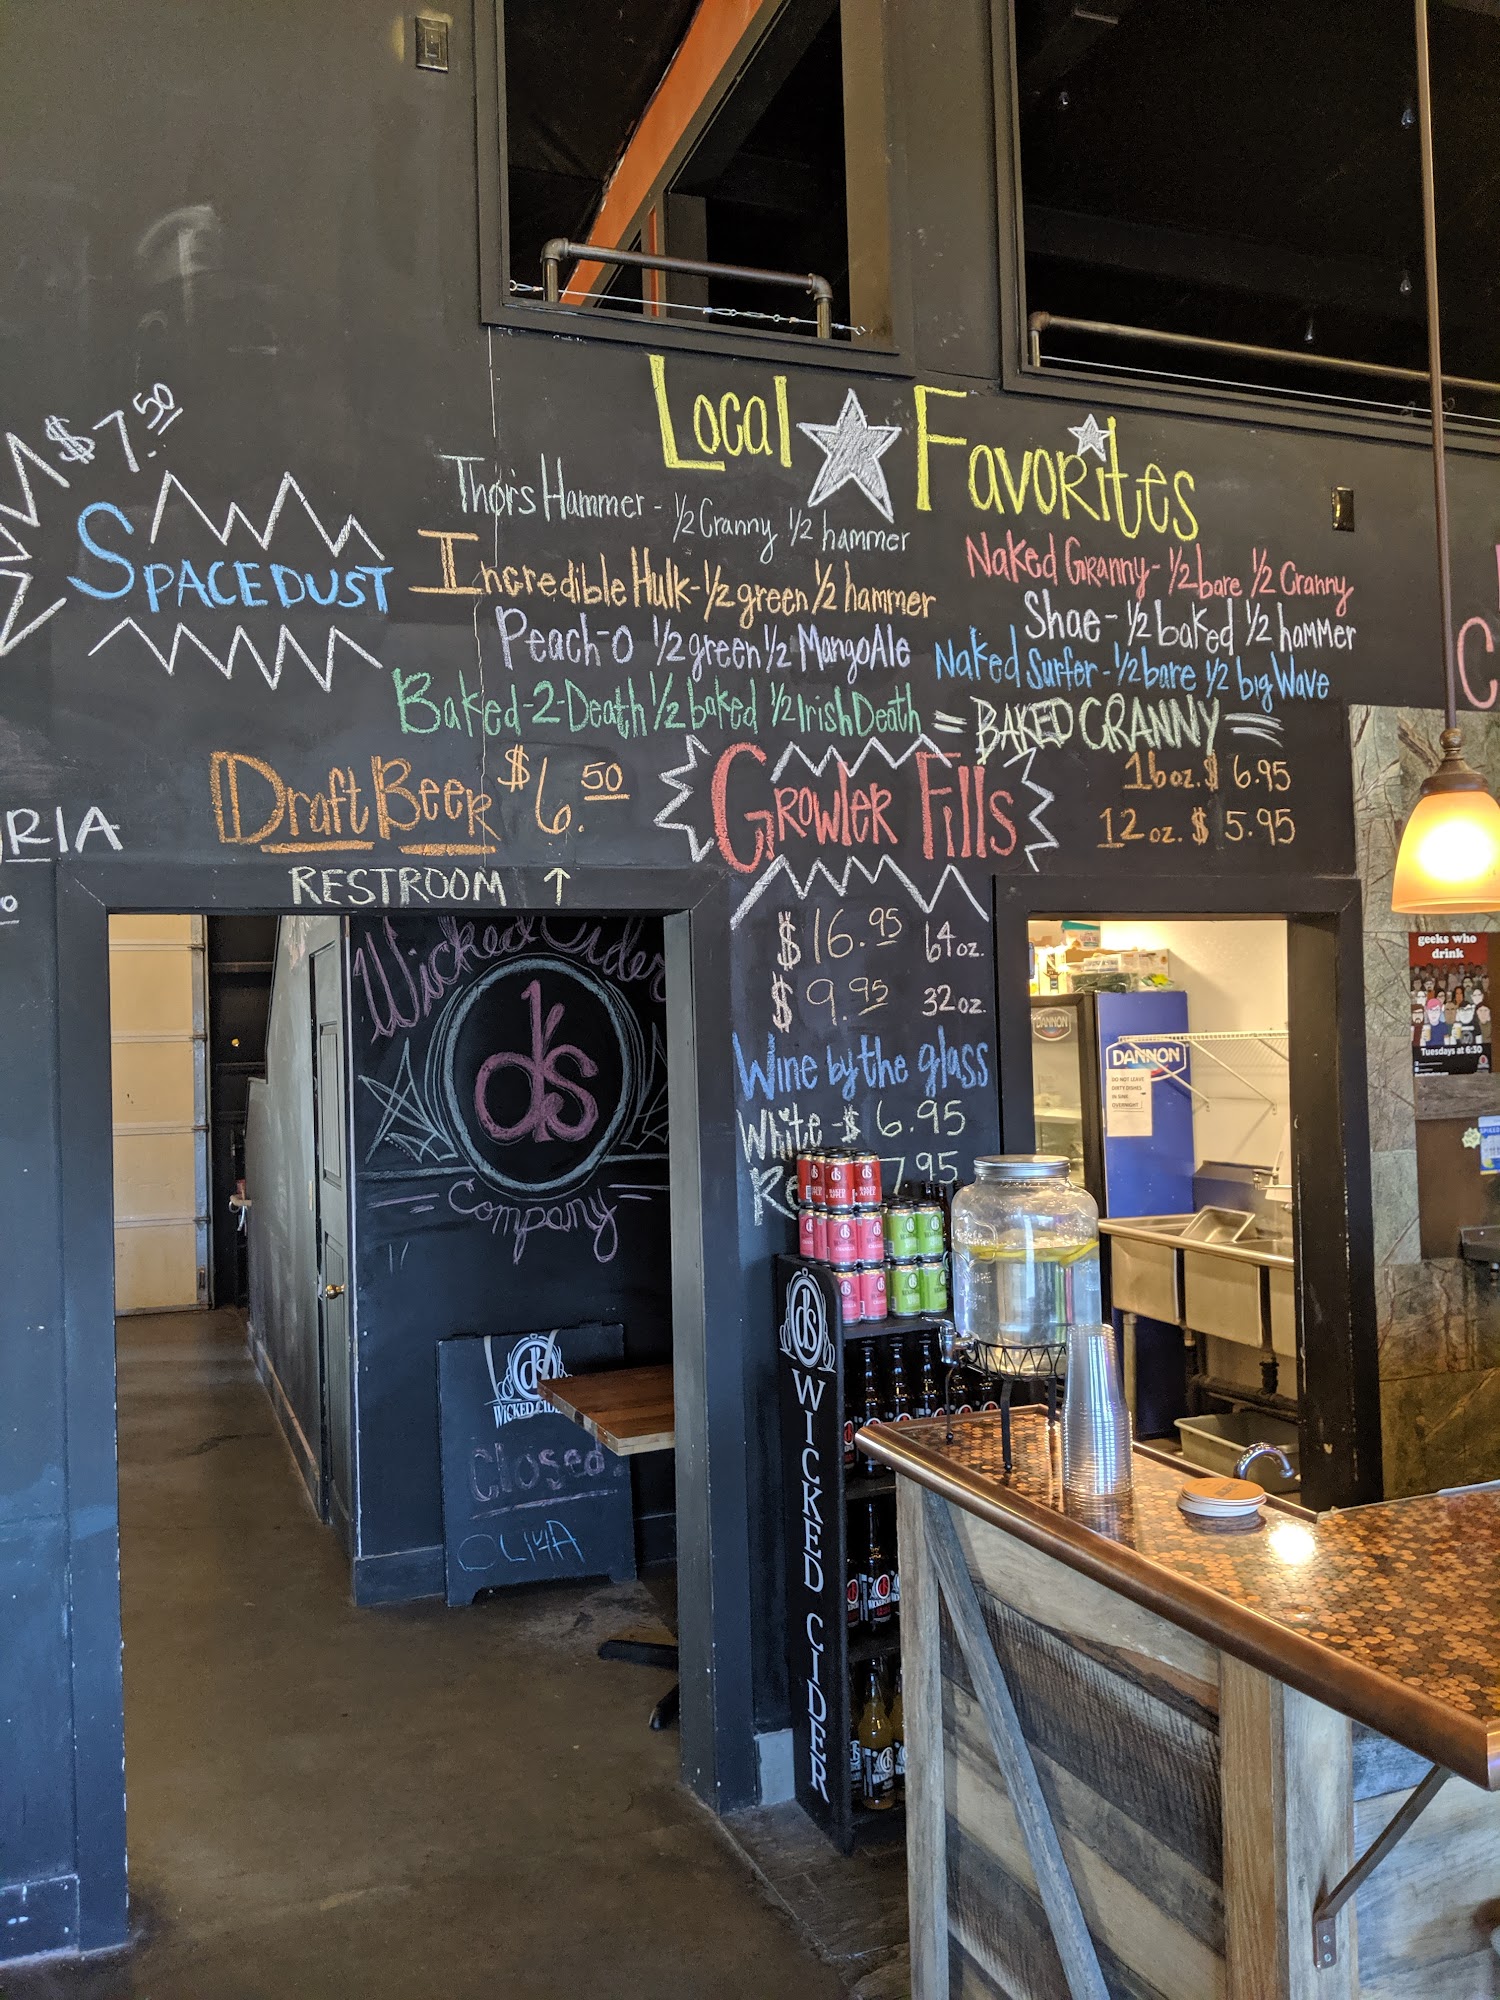 Local Favorites
$7.50
SPACEDUST
Thor's Hammer - 1/2 Cranny 1/2 hammer
Incredible Hulk - 1/2 green 1/2 hammer
Peach-O 1/2 green 1/2 Mango Ale
Baked-2-Death 1/2 baked 1/2 Irish Death
Naked Granny - 1/2 bare 1/2 Cranny
Shae - 1/2 baked 1/2 hammer
Naked Surfer - 1/2 bare 1/2 big Wave
= BAKED CRANNY =
16 oz. $ 6.95
12 oz. $ 5.95
RIA
Draft Beer $6.50
RESTROOM ↑
Growler Fills
$16.95 64 oz.
$9.95 32 oz.
Wine by the glass
White - $ 6.95
Re 7.95
Wicked Cider
ds
Company
WICKED CIDE
Closed.
WICKED CIDER
DANNON
DANNON
DO NOT LEAVE
DIRTY DISHES
IN SINK
OVERNIGHT
geeks who
drink
Tuesdays at 6:30
C